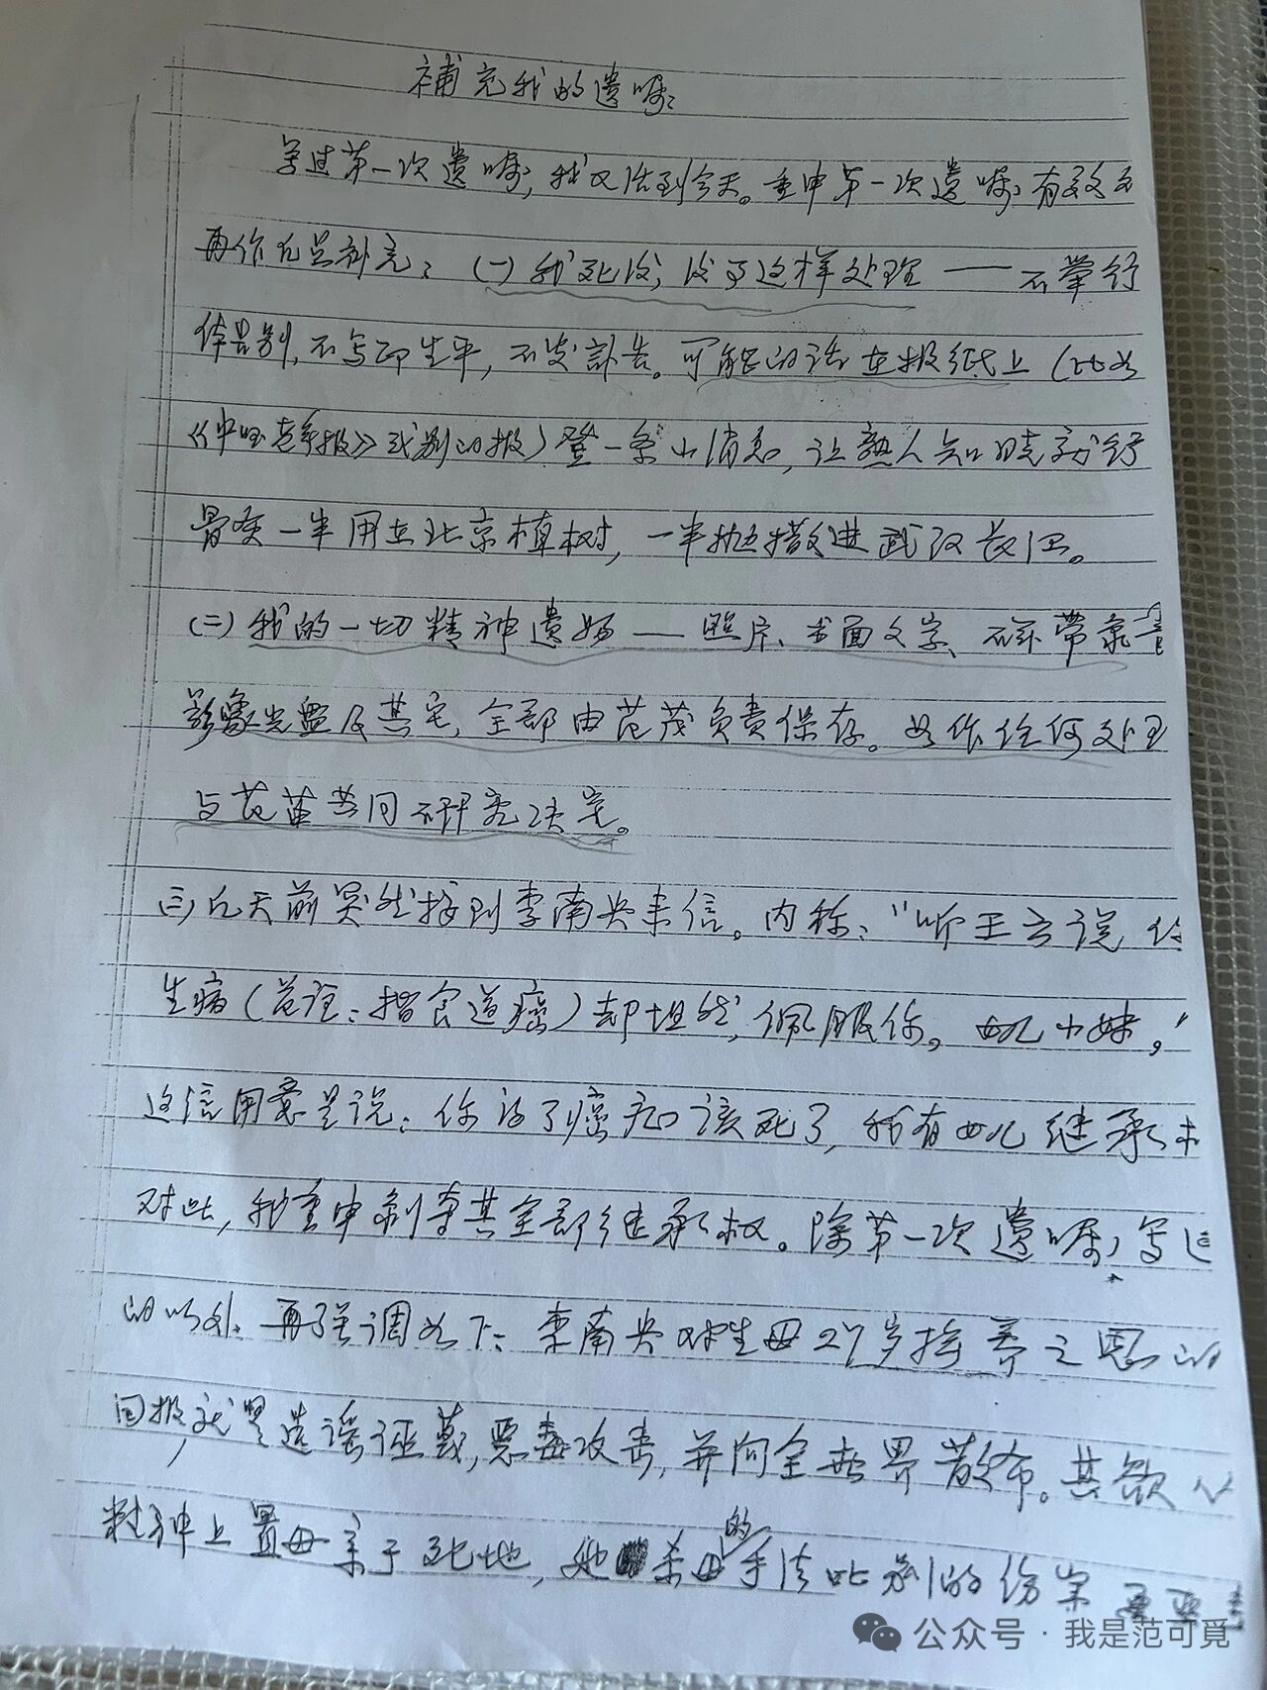 補充我的遗嘱：
写过第一次遗嘱，我又活到今天。重申第一次遗嘱有效
再作几点补充：（一）我死后，后事这样处理——不举行
体告别，不写印生平，不发讣告。可能的话在报纸上（比如
《中国老年报》或别的报）登一条小消息，让熟人知晓就行
骨灰一半用在北京植树，一半抛撒进武汉长江。
（二）我的一切精神遗物——照片、书面文字、磁带录音
影象光盘及其它，全部由范茂负责保存。如作任何处理
与范苗共同研究决定。
三）几天前突然接到李南央来信。内称：“听王云说你
生病（范注：指食道癌）却坦然，佩服你。女儿小妹。”
这信用意是说：你得了癌症该死了，我有女儿继承
对此，我重申剥夺其全部继承权。除第一次遗嘱，写
的以外，再强调如下：李南央对生母27岁抚养之恩的
回报，就是造谣诬蔑，恶毒攻击，并向全世界散布。其欲
精神上置母亲于死地，她杀母的手法比别的伤害
公众号·我是范可覓